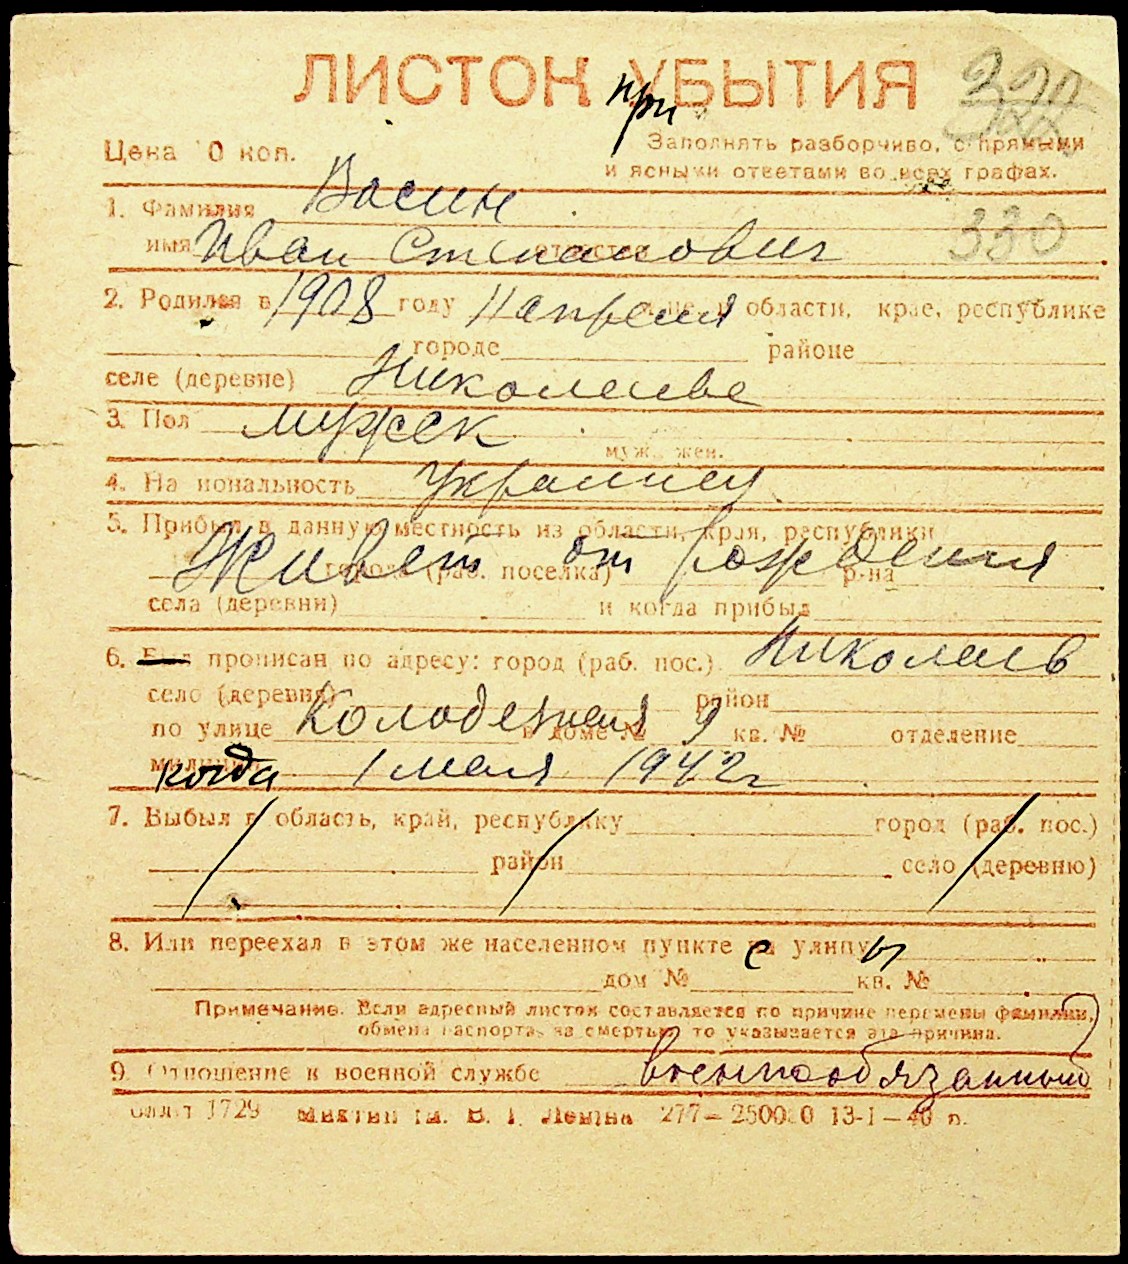 ЛИСТОК УБЫТИЯ
при
Цена 10 коп.
Заполнять разборчиво, с прямыми
и ясными ответами во всех графах.
1. Фамилия Васин
имя Иван Степанович отчество 330
2. Родился в 1908 году 11 апреля области, крае, республике
городе районе
селе (деревне) Николаеве
3. Пол мужск
муж., жен.
4. Национальность Украинец
5. Прибыл в данную местность из области, края, республики
Живет от рождения
города (раб. поселка) р-на
села (деревни) и когда прибыл
6. Был прописан по адресу: город (раб. пос.) Николаев
село (деревня) район
по улице Колодезная в доме № 9 кв. № отделение
милиции когда 1 мая 1942 г
7. Выбыл в область, край, республику город (раб. пос.)
район село (деревню)
8. Или переехал в этом же населенном пункте с улицы
дом № кв. №
Примечание. Если адресный листок составляется по причине перемены фамилии,
обмена паспорта, за смертью, то указывается эта причина.
9. Отношение к военной службе военнообязанный
1729 Ленина 277— 13-I—40 г.